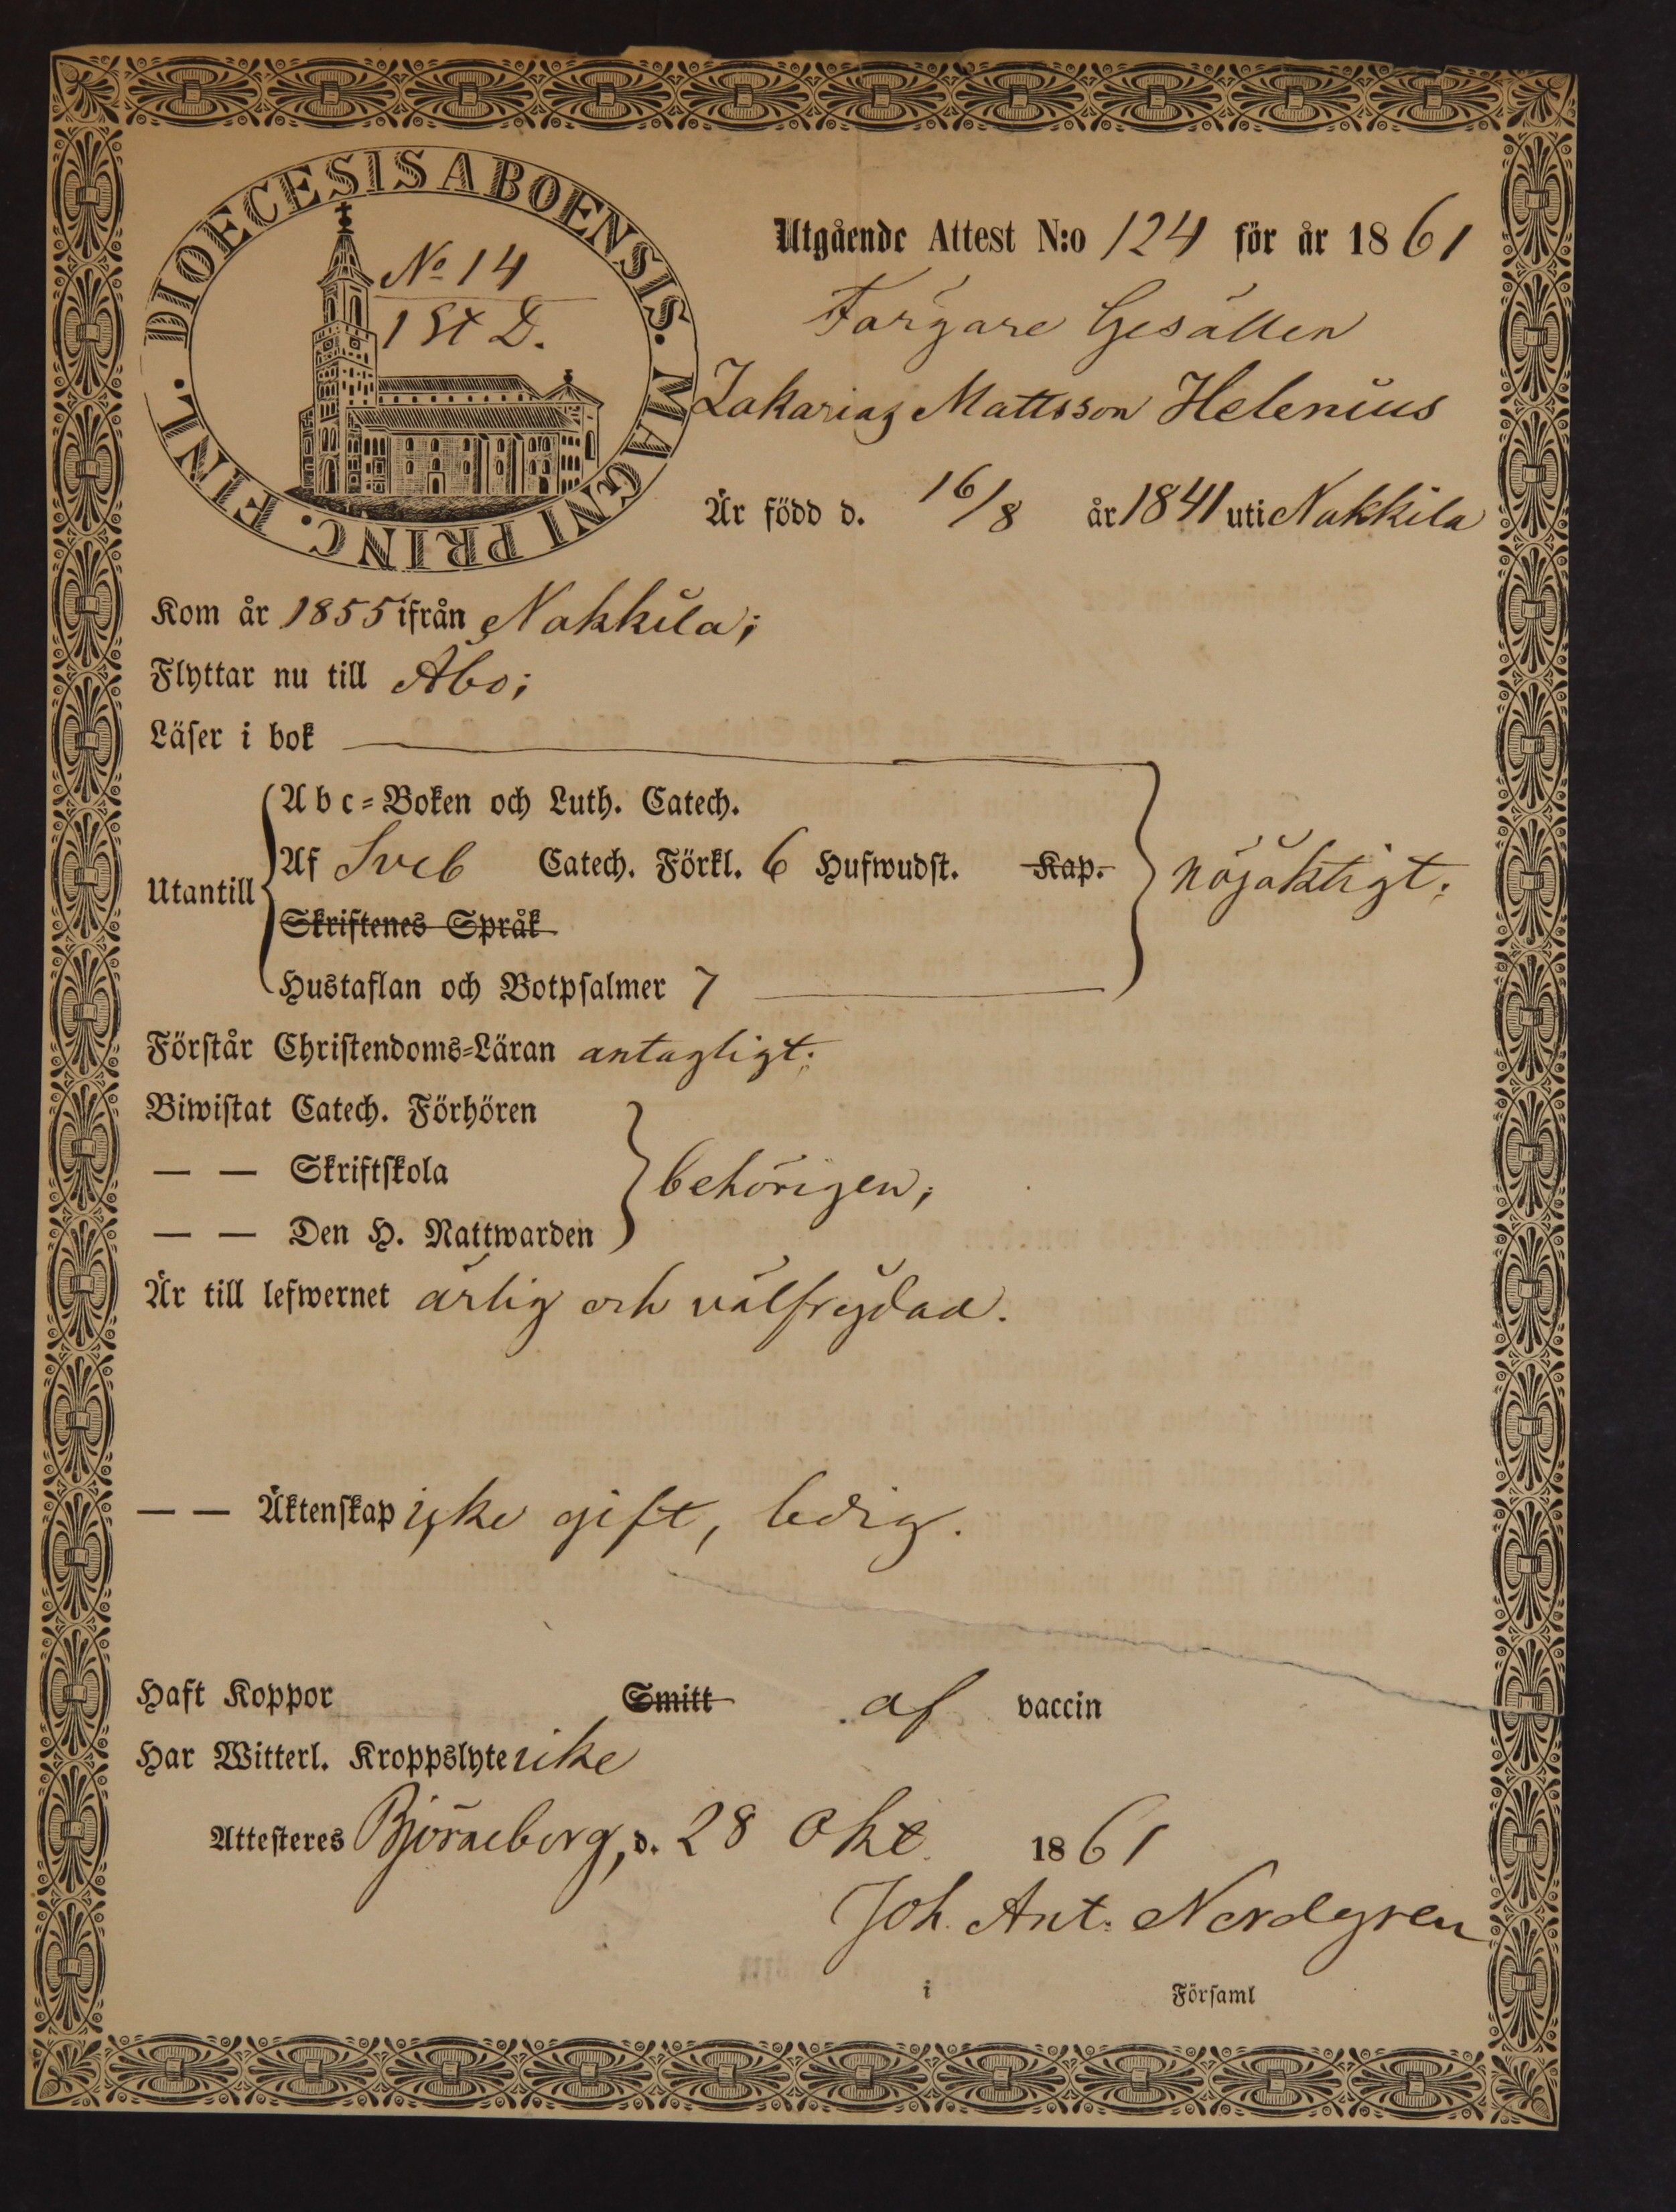 DIOECESIS ABOENSIS. MAGNI PRINC. FINL.
No 14
1 St D.
Utgående Attest N:o 124 för år 1861
Färgare Gesällen
Zakarias Mattsson Helenius
Är född d. 16/8 år 1841 uti Nakkila
Kom år 1855 ifrån Nakkila;
Flyttar nu till Åbo;
Läser i bok
Abc-Boken och Luth. Catech.
Utantill Af Sveb Catech. Förkl. 6 Hufwudst. Kap. nöjaktigt;
Skriftenes Språk
Hustaflan och Botpsalmer 7
Förstår Christendoms-Läran antagligt;
Biwistat Catech. Förhören
— — Skriftskola behörigen;
— — Den H. Nattwarden
Är till lefwernet ärlig och välfrejdad.
— — Äktenskap icke gift, ledig.
Haft Koppor Smitt af vaccin
Har Witterl. Kroppslyte icke
Attesteres Björneborg, d. 28 Okt. 1861
Joh. Ant. Nordgren
i Församl